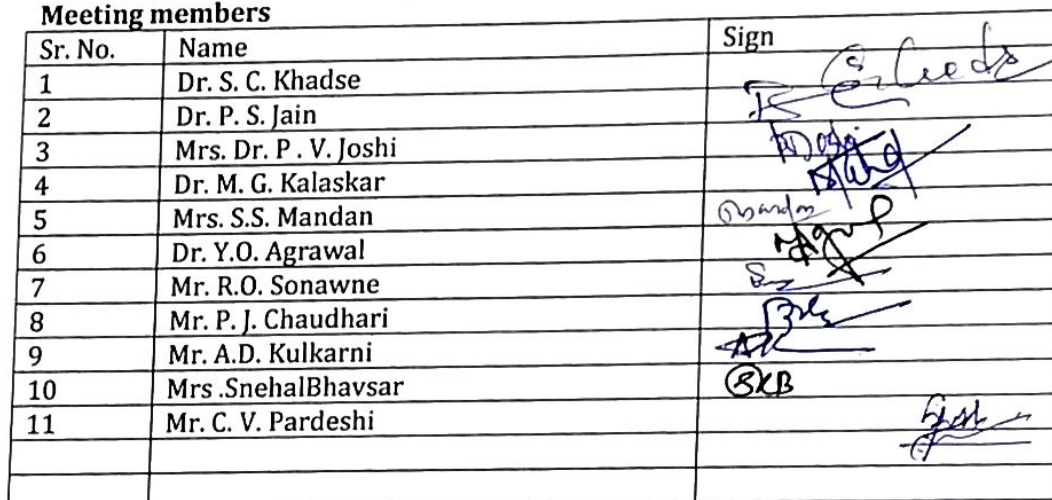 Meeting members
Sr. No. Name Sign
1 Dr. S. C. Khadse
2 Dr. P. S. Jain
3 Mrs. Dr. P . V. Joshi
4 Dr. M. G. Kalaskar
5 Mrs. S.S. Mandan
6 Dr. Y.O. Agrawal
7 Mr. R.O. Sonawne
8 Mr. P. J. Chaudhari
9 Mr. A.D. Kulkarni
10 Mrs .SnehalBhavsar SKB
11 Mr. C. V. Pardeshi